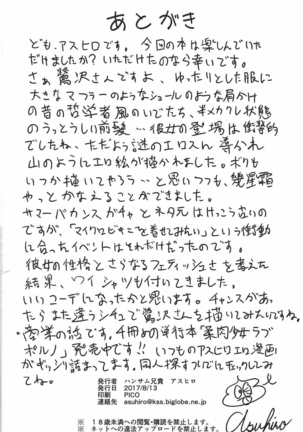 あとがき
ども、アスヒロです。今回の本は楽しんでいた
だけましたか?いただけたのなら幸いです。
さぁ鷺沢さんですよ、ゆったりとした服に
大きなマフラーのようなショールのような肩かけ
の昔の哲学者風のいでたち、半メカクレ状態
のうっとうしい前髪…彼女の登場は衝撃的
でしたね、ただよう謎のエロスに導かれ
山のようにエロ絵が描かれました。ボクも
いつか描いてやろう…と思いつつも、幾星霜
やっとかなえることができました。
サマーバカンスガチャとネタ元はけっこう古いの
ですが、「マイクロビキニを着せてみたい」という衝動
に合ったイベントはそれだけだったのです。
彼女の性格とさらなるフェティッシュさを考えた
結果、ワイシャツも付いてきました。
いいコーデになったかと思います。チャンスがあっ
たらまた違うシチュで鷺沢さんを描いてみたいですね。
・商業の話です。4冊めの単行本「 肉少女ラブ
ポルノ」発売中です!!いつものアスヒロエロ漫画
がギッシリ詰まってます。同人探すついでにチェックしてみ
てね。
発行者 ハンサム兄貴 アスヒロ
発行日 2017/8/13
印刷 PICO
連絡先 asuhiro@kss.biglobe.ne.jp
Asuhiro
※18歳未満への閲覧・購読を禁止します。
※ネットへの違法アップロードを禁止します。